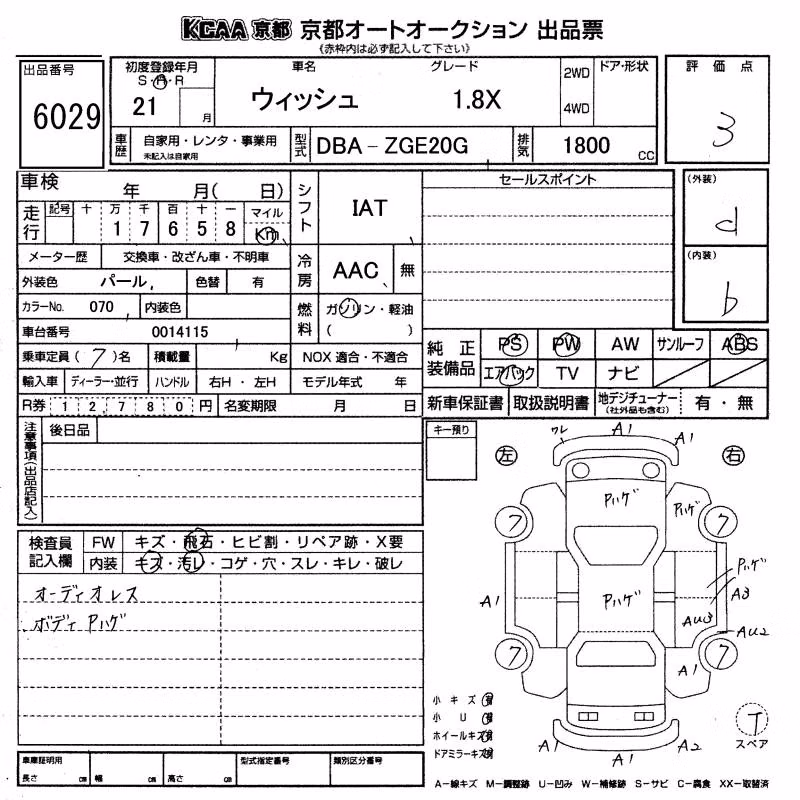 KCAA 京都 京都オートオークション 出品票
《赤枠内は必ず記入して下さい》
出品番号
6029
初度登録年月
S・H・R
21
月
車名
ウィッシュ
グレード
1.8X
2WD
4WD
ドア・形状
評価点
3
車歴
自家用・レンタ・事業用
未記入は自家用
型式
DBA-ZGE20G
排気
1800 CC
車検 年 月( 日)
走行
記号 十 万 千 百 十 一 マイル
1 7 6 5 8 Km
シフト
IAT
セールスポイント
(外装)
d
(内装)
b
メーター歴 交換車・改ざん車・不明車
冷房
AAC 無
外装色 パール 色替 有
カラーNo. 070 内装色
燃料
ガソリン・軽油
( )
車台番号 0014115
乗車定員(7)名 積載量 Kg NOX 適合・不適合
純正装備品
PS PW AW サンルーフ ABS
エアバック TV ナビ
輸入車 ディーラー・並行 ハンドル 右H・左H モデル年式 年
R券 12,780円 名変期限 月 日
新車保証書 取扱説明書 地デジチューナー(社外品も含む) 有・無
注意事項(出品店記入)
後日品
キー預り
左
右
ワレ A1 A1
Pハゲ Pハゲ
7 7
Pハゲ
A1 Pハゲ A3
AU3
AU2
7 7
A1
A1 A1 A2
検査員記入欄
FW キズ・飛石・ヒビ割・リペア跡・X要
内装 キズ・汚レ・コゲ・穴・スレ・キレ・破レ
オーディオレス
ボディPハゲ
小キズ有
小U有
ホイールキズ有
ドアミラーキズ有
T
スペア
車庫証明用
長さ cm 幅 cm 高さ cm
型式指定番号
類別区分番号
A-線キズ M-調整跡 U-凹み W-補修跡 S-サビ C-腐食 XX-取替済